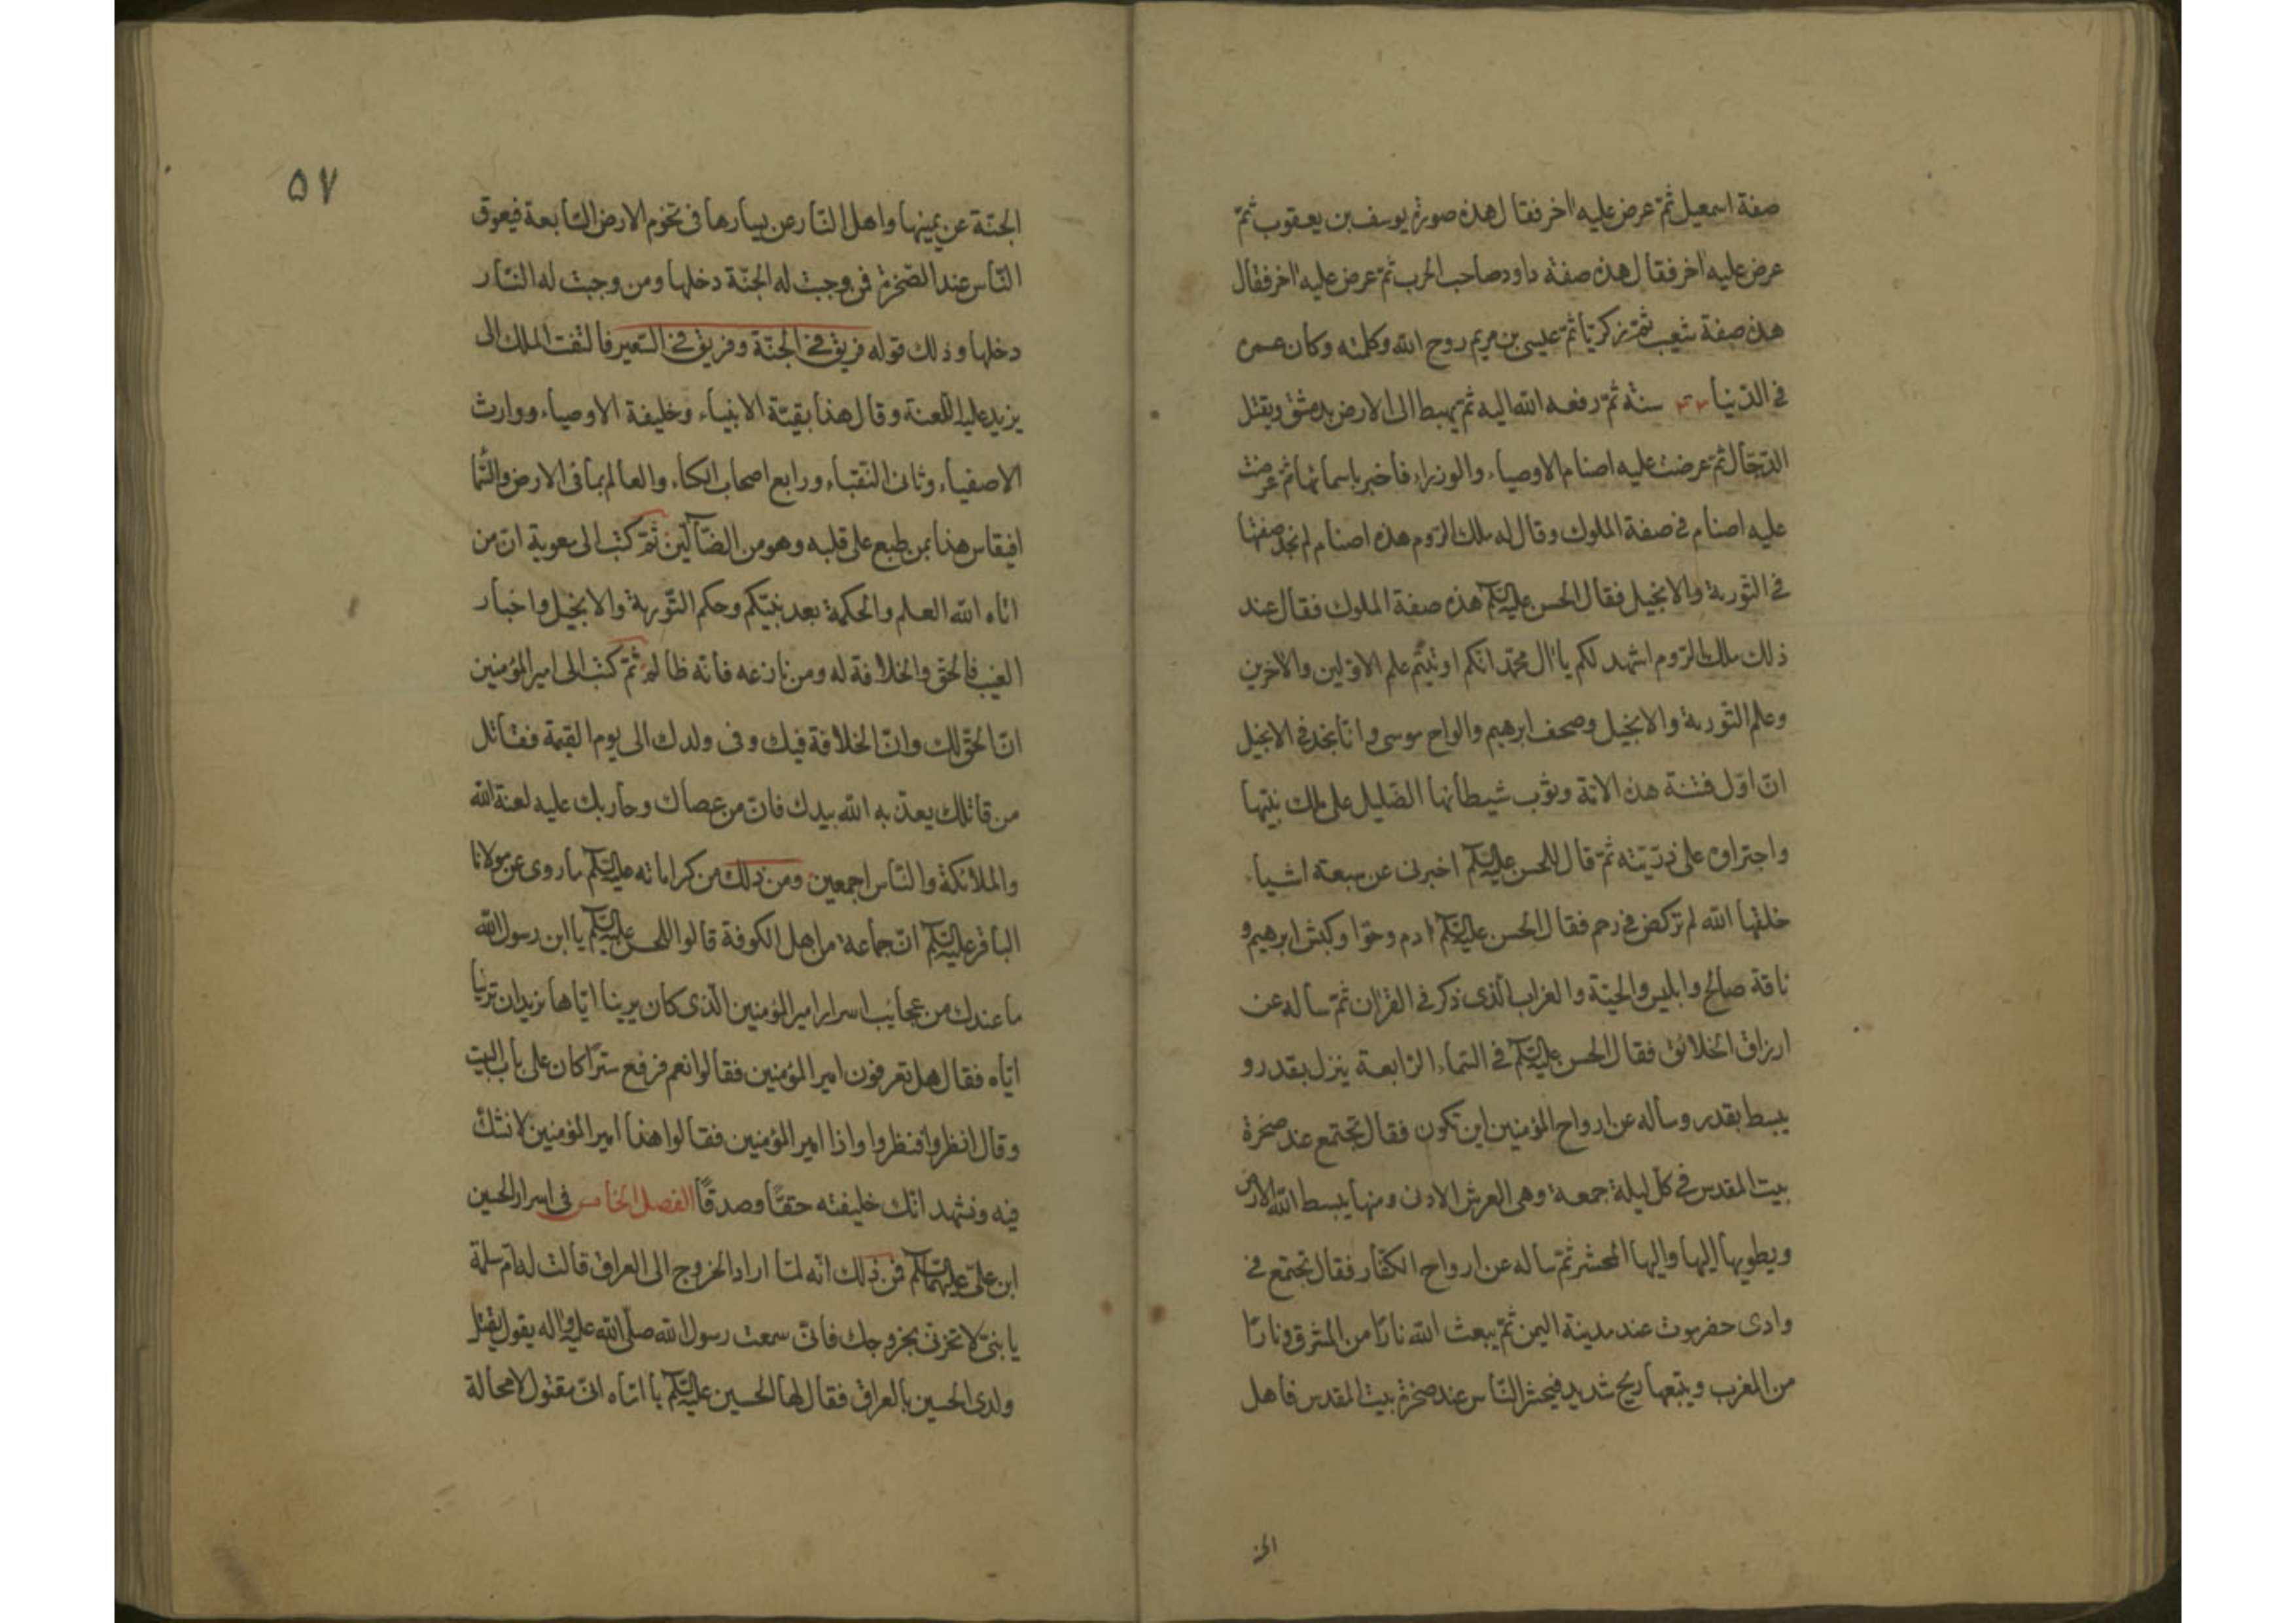 صفة اسمعيل ثمّ عرض عليه اخر فقال هذه صورة يوسف بن يعقوب ثمّ
عرض عليه اخر فقال هذه صفة داود صاحب الحرب ثمّ عرض عليه اخر فقال
هذه صفة شعيب ثمّ زكريّا ثمّ عيسى بن مريم روح الله وكلمته وكان عمره
في الدّنيا ٣٣ سنة ثمّ رفعه الله اليه ثمّ يهبط الى الارض بدمشق ويقتل
الدّجّال ثمّ عرضت عليه اصنام الاوصياء والوزراء فاخبر باسمائها ثمّ عرضت
عليه اصنام في صفة الملوك وقال له ملك الرّوم هذه اصنام لم نجد صفتها
في التّورية والانجيل فقال الحسن عليه السّلم هذه صفة الملوك فقال عند
ذلك ملك الرّوم اشهد لكم يا ال محمّد انكم اوتيتم علم الاوّلين والاخرين
وعلم التّورية والانجيل وصحف ابرهيم والواح موسى وانّا نجد في الانجيل
انّ اوّل فتنة هذه الامّة وثوب شيطانها الضّليل على ملك نبيّها
واجتراؤه على ذرّيّته ثمّ قال للحسن عليه السّلم اخبرنى عن سبعة اشياء
خلقها الله لم تركض في رحم فقال الحسن عليه السّلم ادم وحوّا وكبش ابرهيم و
ناقة صالح وابليس والحيّة والغراب الّذى ذكر في القران ثمّ ساله عن
ارزاق الخلائق فقال الحسن عليه السّلم في السّماء الرّابعة ينزل بقدر و
يبسط بقدر وساله عن ارواح المؤمنين اين تكون فقال تجتمع عند صخرة
بيت المقدس في كلّ ليلة جمعة وهى العرش الادنى ومنها يبسط الله الارض
ويطويها اليها واليها المحشر ثمّ ساله عن ارواح الكفّار فقال تجتمع في
وادى حضرموت عند مدينة اليمن ثمّ يبعث الله نارًا من المشرق ونارًا
من المغرب ويتبعها ريح شديد فيحشر النّاس عند صخرة بيت المقدس فاهل
الجنّة
٥٧
الجنّة عن يمينها واهل النّار عن يسارها في تخوم الارض السّابعة فيعوق
النّاس عند الصّخرة فمن وجبت له الجنّة دخلها ومن وجبت له النّار
دخلها وذلك قوله فريق في الجنّة وفريق في السّعير فالتفت الملك الى
يزيد عليه اللّعنة وقال هذا بقيّة الانبياء وخليفة الاوصياء ووارث
الاصفياء وثانى النّقباء ورابع اصحاب الكساء والعالم بما في الارض والسّما
افيقاس هذا بمن طبع على قلبه وهو من الضّالّين ثمّ كتب الى معوية انّ من
اتاه الله العلم والحكمة بعد نبيّكم وحكم التّورية والانجيل واخبار
الغيب فالحقّ والخلافة له ومن نازعه فانّه ظالم ثمّ كتب الى امير المؤمنين
انّ الحقّ لك وانّ الخلافة فيك وفى ولدك الى يوم القيمة فقاتل
من قاتلك يعذّبه الله بيدك فانّ من عصاك وحاربك عليه لعنة الله
والملائكة والنّاس اجمعين ومن ذلك من كراماته عليه السّلم ما روى عن مولانا
الباقر عليه السّلم انّ جماعة من اهل الكوفة قالوا للحسن عليه السّلم يا ابن رسول الله
ما عندك من عجائب اسرار امير المؤمنين الّذى كان يرينا ايّاها نريد ان ترينا
ايّاه فقال هل تعرفون امير المؤمنين فقالوا نعم فرفع سترًا كان على باب البيت
وقال انظروا فنظروا واذا امير المؤمنين فقالوا هذا امير المؤمنين لا نشكّ
فيه ونشهد انّك خليفته حقًّا وصدقًا الفصل الخامس فى اسرار الحسين
ابن علىّ عليهما السّلم فمن ذلك انّه لمّا اراد الخروج الى العراق قالت له امّ سلمة
يا بنىّ لا تحزنّى بخروجك فانّى سمعت رسول الله صلّى الله عليه واله يقول يقتل
ولدى الحسين بالعراق فقال لها الحسين عليه السّلم يا امّاه انّى مقتول لا محالة